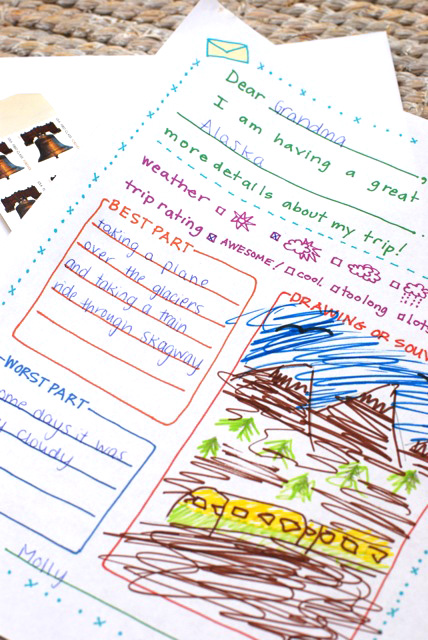 Dear Grandma,
I am having a great
Alaska
more details about my trip!
weather
trip rating AWESOME! cool too long lots
BEST PART
taking a plane
over the glaciers
and taking a train
ride through Skagway
DRAWING OR SOUV
WORST PART
ome days it was
y cloudy
Molly